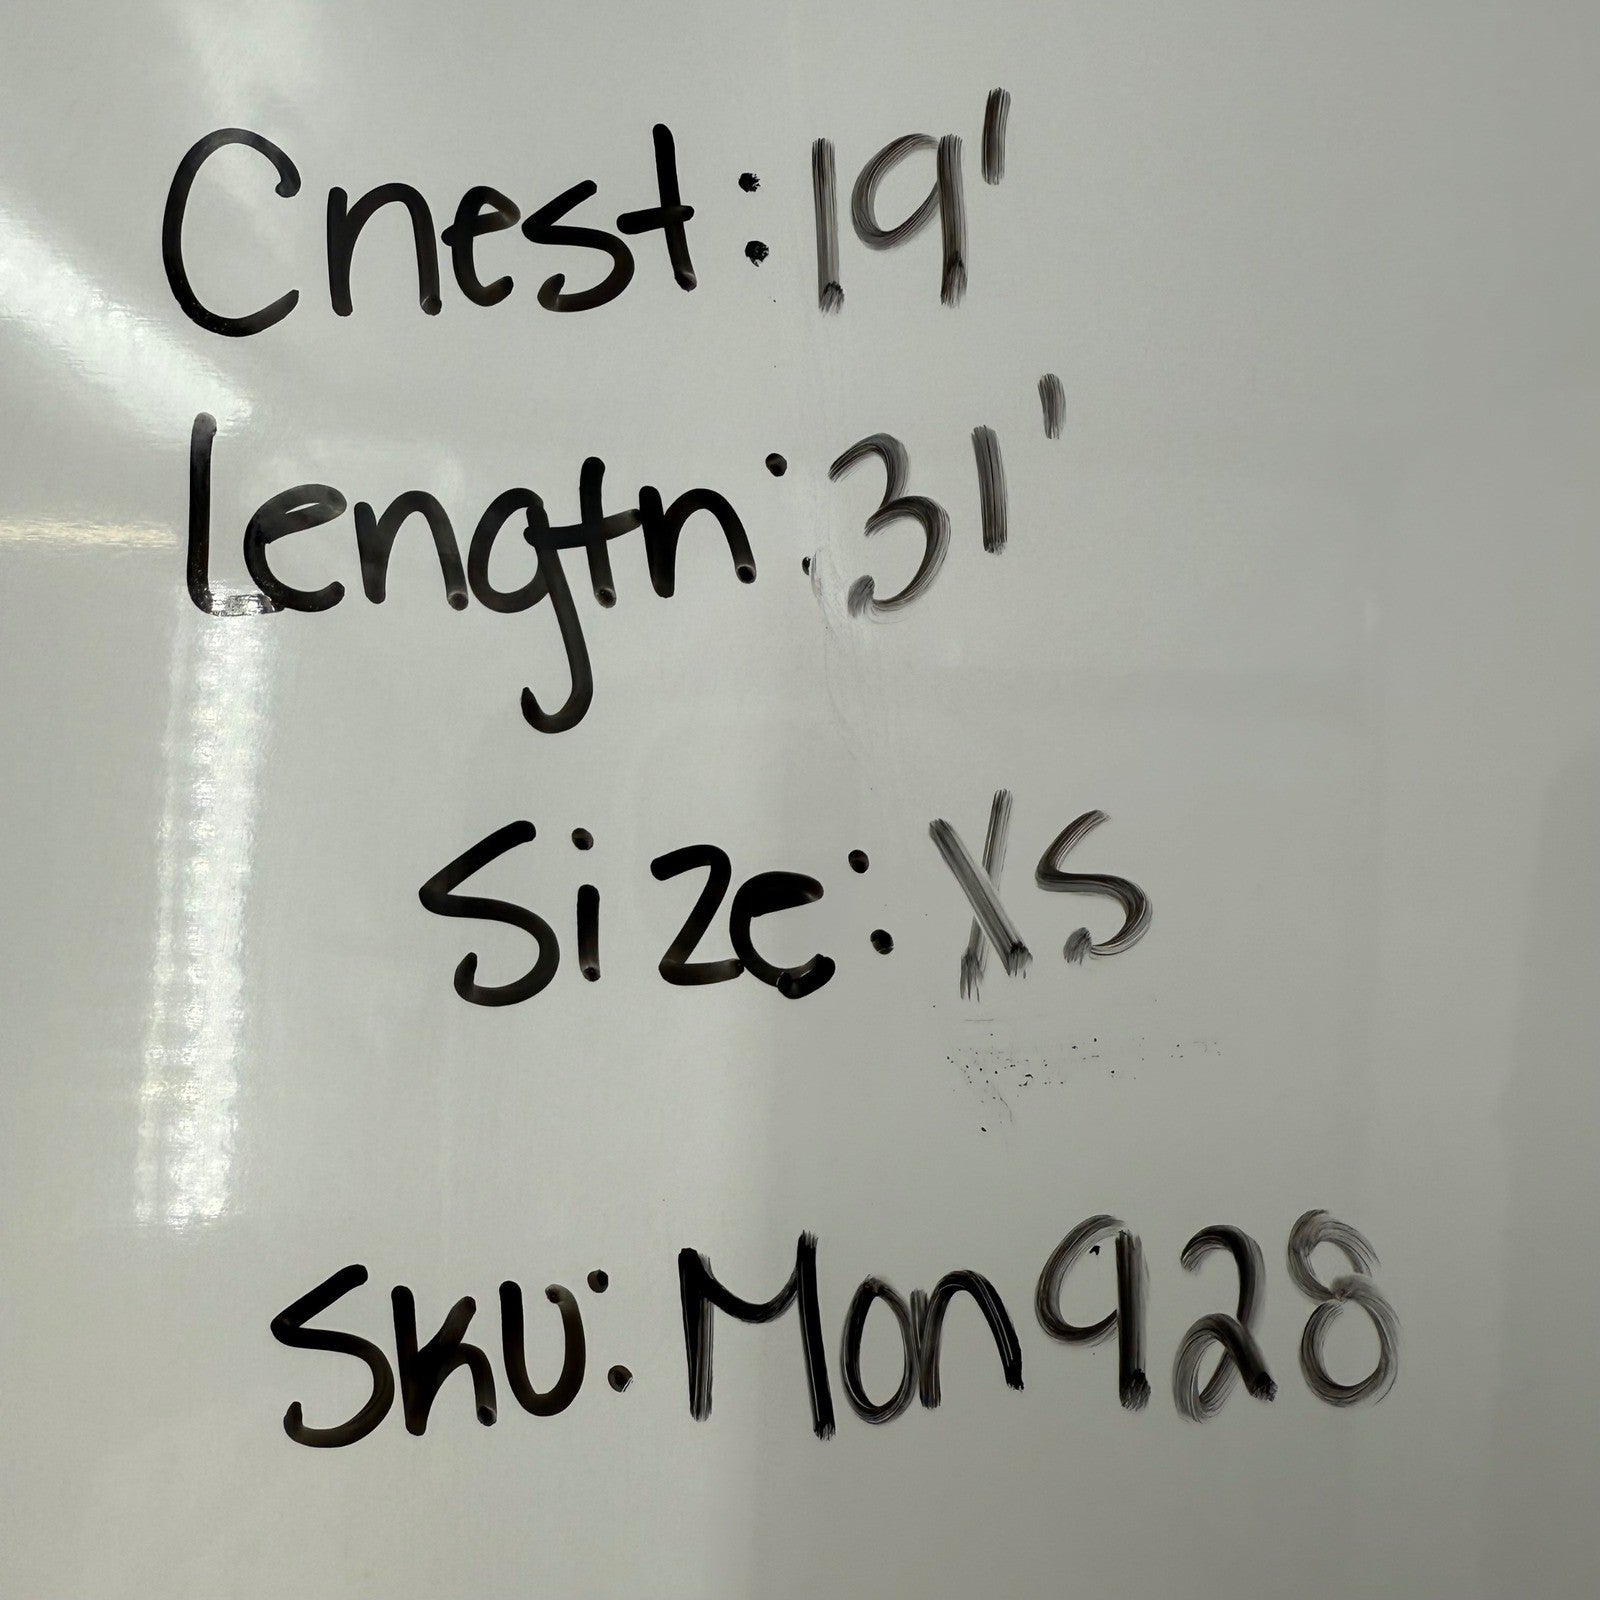 Chest: 19'
Length: 31'
Size: XS
SKU: Mon928